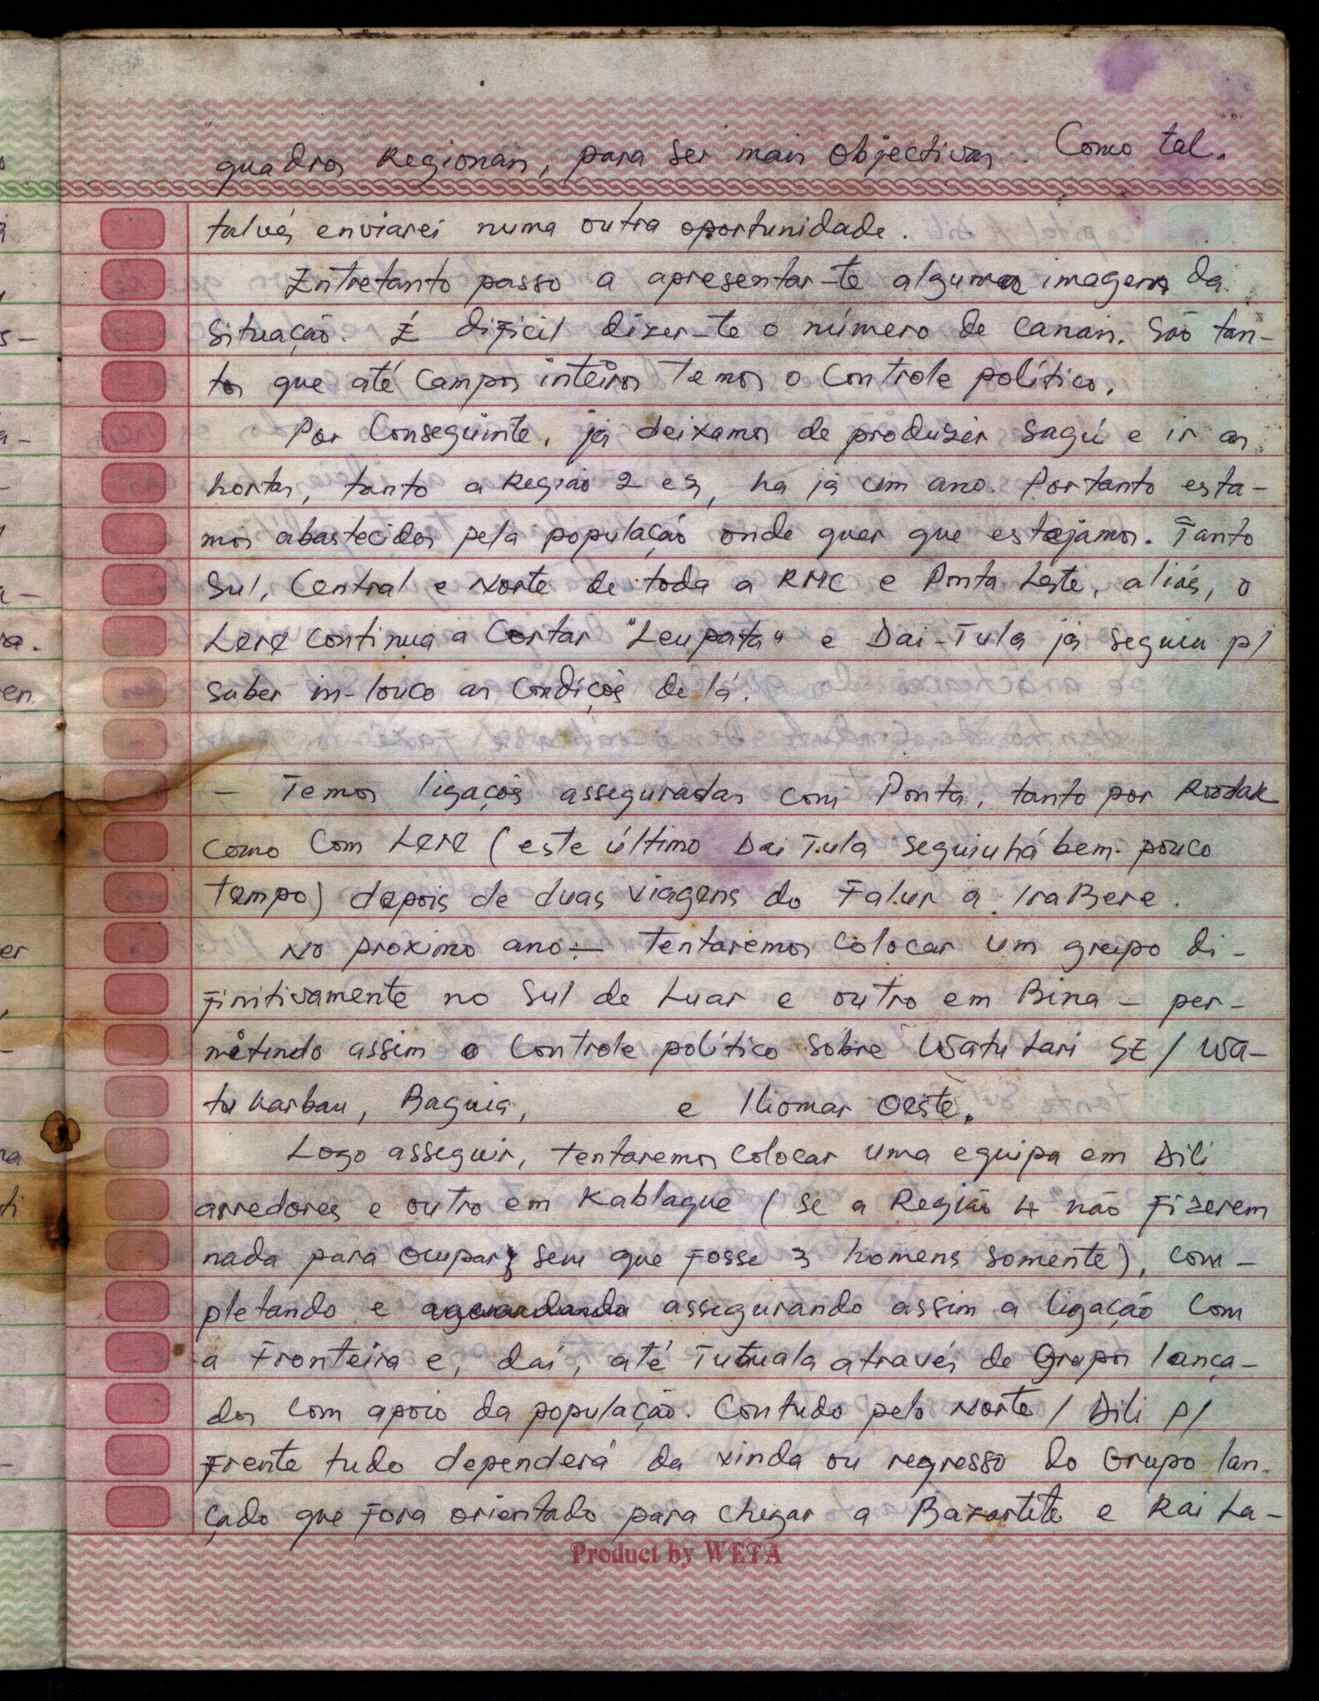 quadros Regionais, para ser mais objectivos. Como tal.
talvés enviarei numa outra oportunidade.
Entretanto passo a apresentar-te algumas imagens da
situação. É difícil dizer-te o número de canais. São tan-
tos que até Campos inteiros Temos o Controle político.
Por Conseguinte, já deixamos de produzir Sagú e ir as
hortas, tanto a Região 2 e 3, ha já um ano. Portanto esta-
mos abastecidos pela população onde quer que estejamos. Tanto
Sul, Central e Norte de toda a RMC e Ponta Leste, aliás, o
Lere Continua a Cortar "Leupata" e Dai-Tula já seguiu p/
saber in-louco as Condições de lá.
- Temos ligações asseguradas com Ponta, tanto por Roodak
como Com Lere (este último Dai Tula seguiu há bem pouco
tempo) depois de duas viagens do Falur a IraBere.
No proximo ano:- tentaremos Colocar um grupo di-
finitivamente no Sul de Luar e outro em Bina - per-
metindo assim o Controle político sobre Watu Lari SE / Wa-
tu Karbau, Baguia, e Iliomar Oeste.
Logo asseguir, tentaremos Colocar uma equipa em Dili
arredores e outro em Kablaque (se a Região 4 não fizerem
nada para ocupar, sem que fosse 3 homens somente), com-
pletando e aguardando assegurando assim a ligação Com
a Fronteira e, daí, até Tutuala através de Grupos lança-
dos com apoio da população. Contudo pelo Norte / Dili p/
frente tudo dependerá da vinda ou regresso do Grupo lan-
çado que fora orientado para chegar a Bazartete e Rai La-
Product by WETA